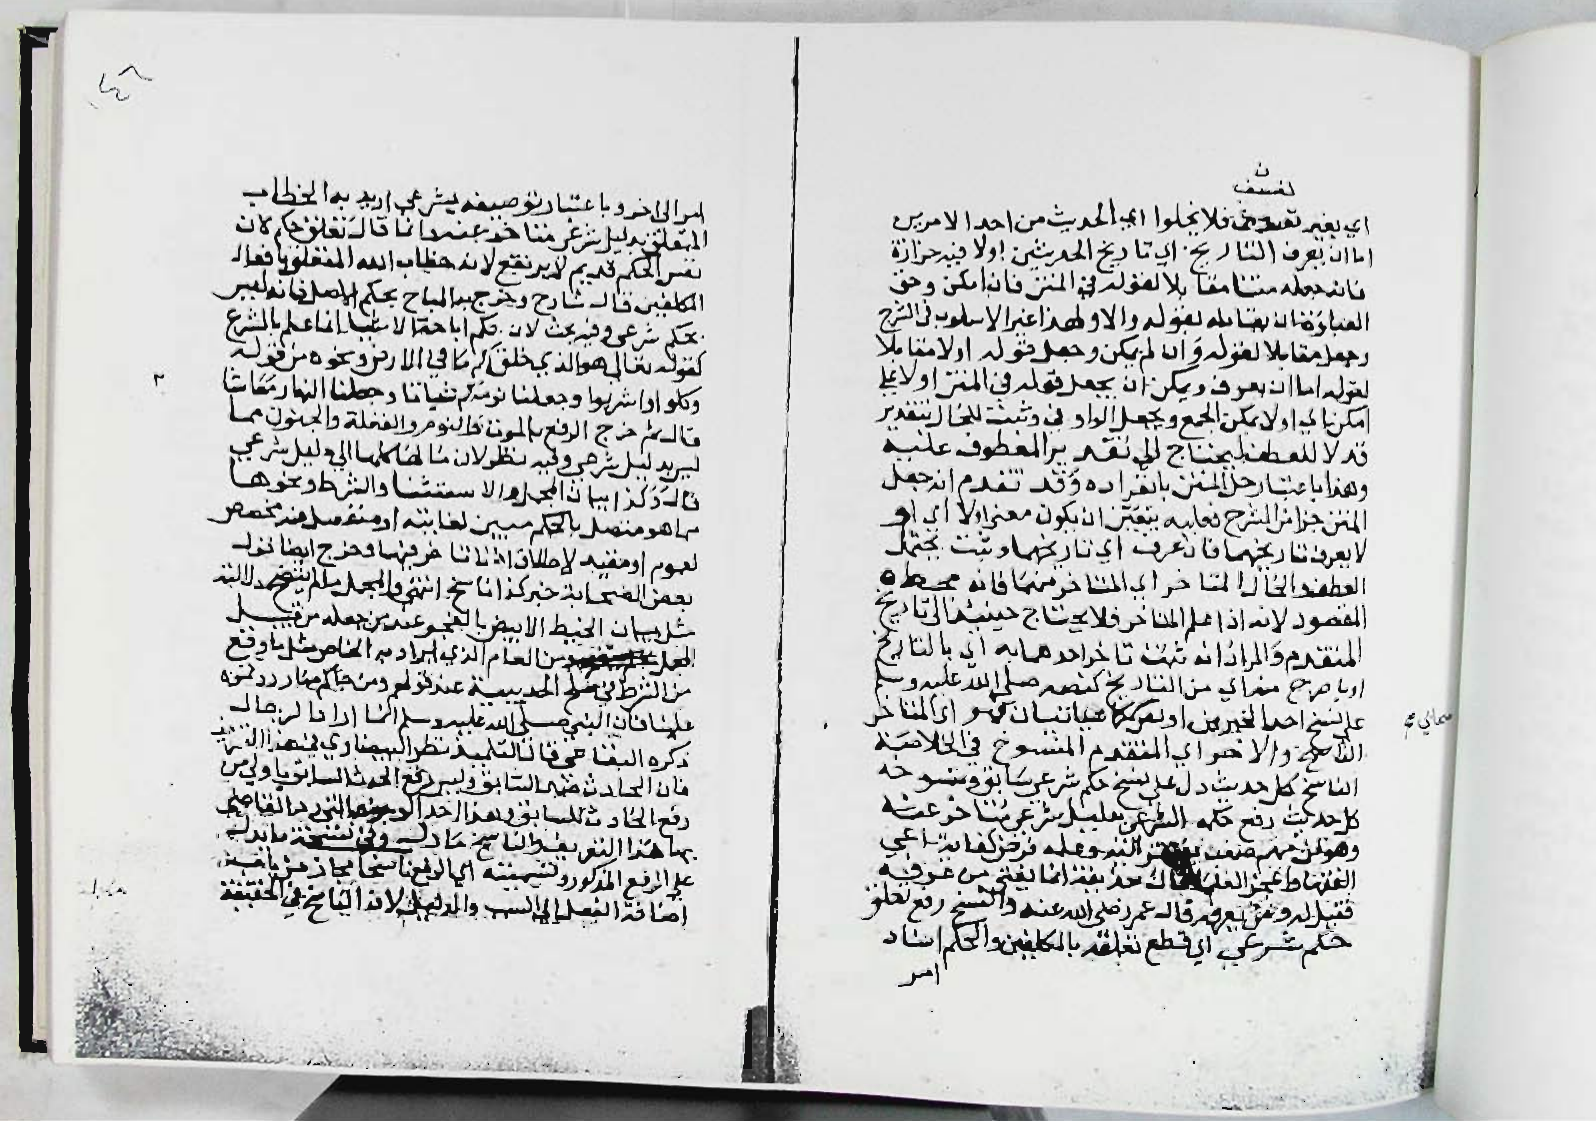 ن
تعسف
اي بغير فلا يخلوا اي الحديث من احد الامرين
اما ان يعرف التاريخ اي تاريخ الحديثين اولا فيه حزازة
فانه جعله مقابلا لقوله في المتن فان امكن وحق
العبارة ان يقابله بقوله والا ولهذا غير الاسلوب في الشرح
وجعل مقابلا لقوله وان لم يمكن وجعل قوله اولا مقابلا
لقوله اما ان يعرف ويمكن ان يجعل قوله في المتن اولا على
امكن اي اولا يمكن الجمع ويجعل الواو في وثبت للحال بتقدير
قد لا للعطف ليحتاج الى تقدير المعطوف عليه
وهذا باعتبار حل المتن بانفراده وقد تقدم انه جعل
المتن جزا من الشرح فعليه يتعين ان يكون معنى اولا اي او
لا يعرف تاريخهما فان عرف اي تاريخهما وثبت يحتمل
العطف والحال المتاخر اي المتاخر منهما فانه محط
المقصود لانه اذا علم المتاخر فلا يحتاج حينئذ الى تاريخ
المتقدم والمراد انه ثبت تاخر احدهما به اي بالتاريخ
او باصرح منه اي من التاريخ كنصه صلى الله عليه وسلم
على نسخ احد الخبرين او سيأتي بيانه فهو اي المتاخر
صحابي صح
الناسخ والاخر اي المتقدم المنسوخ في الخلاصة
الناسخ كل حديث دل على نسخ حكم شرعي سابق ومنسوخه
كل حديث رفع حكمه الشرعي بدليل شرعي متاخر عنه
وهو فن مهم صعب وعلمه فرض كفاية
الفقهاء العلماء قال حذيفة انما يفتي من عرف
فقيل له ومن يعرفه قال عمر رضي الله عنه والنسخ رفع تعلق
حكم شرعي اي قطع تعلقه بالمكلفين والحكم اسناد
امر
١٤٨
امر الى اخر وباعتبار توصيفه بشرعي اريد به الخطاب
المتعلق بدليل شرعي متاخر عنه وانما قال تعلق حكم لان
نفس الحكم قديم لا يرتفع لانه خطاب الله المتعلق بافعال
المكلفين قال شارح وخرج به المباح بحكم الاصل فانه ليس
بحكم شرعي وفيه بحث لان حكم اباحة الاشياء انما علم بالشرع
كقوله تعالى هو الذي خلق لكم ما في الارض ونحوه من قوله
٢
وكلوا واشربوا وجعلنا نومكم سباتا وجعلنا النهار معاشا
قال ثم خرج الرفع بالموت والنوم والغفلة والجنون مما
ليس بدليل شرعي وفيه نظر لان مآلها كلها الى دليل شرعي
قال وكذا بيان المجمل والاستثناء والشرط ونحوها
مما هو متصل بالحكم مبين لغايته او منفصل عنه مخصص
لعموم او مقيد لاطلاق وخرج ايضا قول
بعض الصحابة خبر كذا ناسخ انتهى والمجمل ما لم يتضح دلالته
مثل بيان الخيط الابيض بالفجر عند من جعله من قبيل
المجمل ومن العام الذي يراد به الخاص مثل ما وقع
من الشرط في صلح الحديبية عند قولهم ومن جاءكم منا رددتموه
علينا فان النبي صلى الله عليه وسلم انما اراد الرجال
ذكره البقاعي قال التلميذ نظر البيضاوي في هذا التعريف
فان الحادث ضد السابق وليس رفع الحادث السابق باولى من
رفع الحادث للسابق وهذا احد الوجوه التي رد القاضي
بها هذا التعريف والناسخ ما دل وفي نسخة ما يدل
على الرفع المذكور وتسميته اي الرفع ناسخا مجاز من باب
اضافة الفعل الى السبب والدليل لان الناسخ في الحقيقة